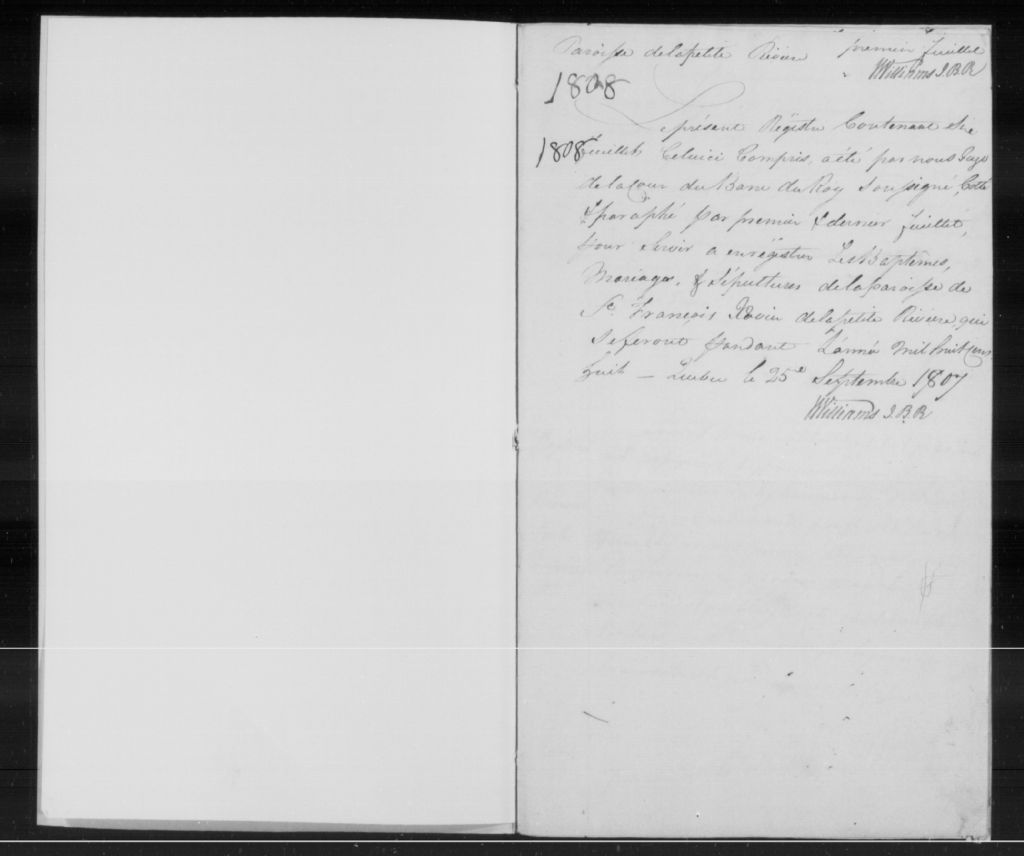 Paroisse de la petite Riviere premier feuillet
Williams J.B.R
1808
Le présent Régistre Contenant Six
1808 feuillets Celuici Compris, a été par nous Juge
de la Cour du Banc du Roy Soussigné, Cotté
& paraphé par premier & dernier feuillet,
pour Servir a enrégistrer Les Baptêmes,
Mariages, & Sépultures de la paroisse de
St. François Xavier de la petite Riviere qui
se feront pendant L'année mil huit cens
huit — Quebec le 25e Septembre 1807
Williams J.B.R